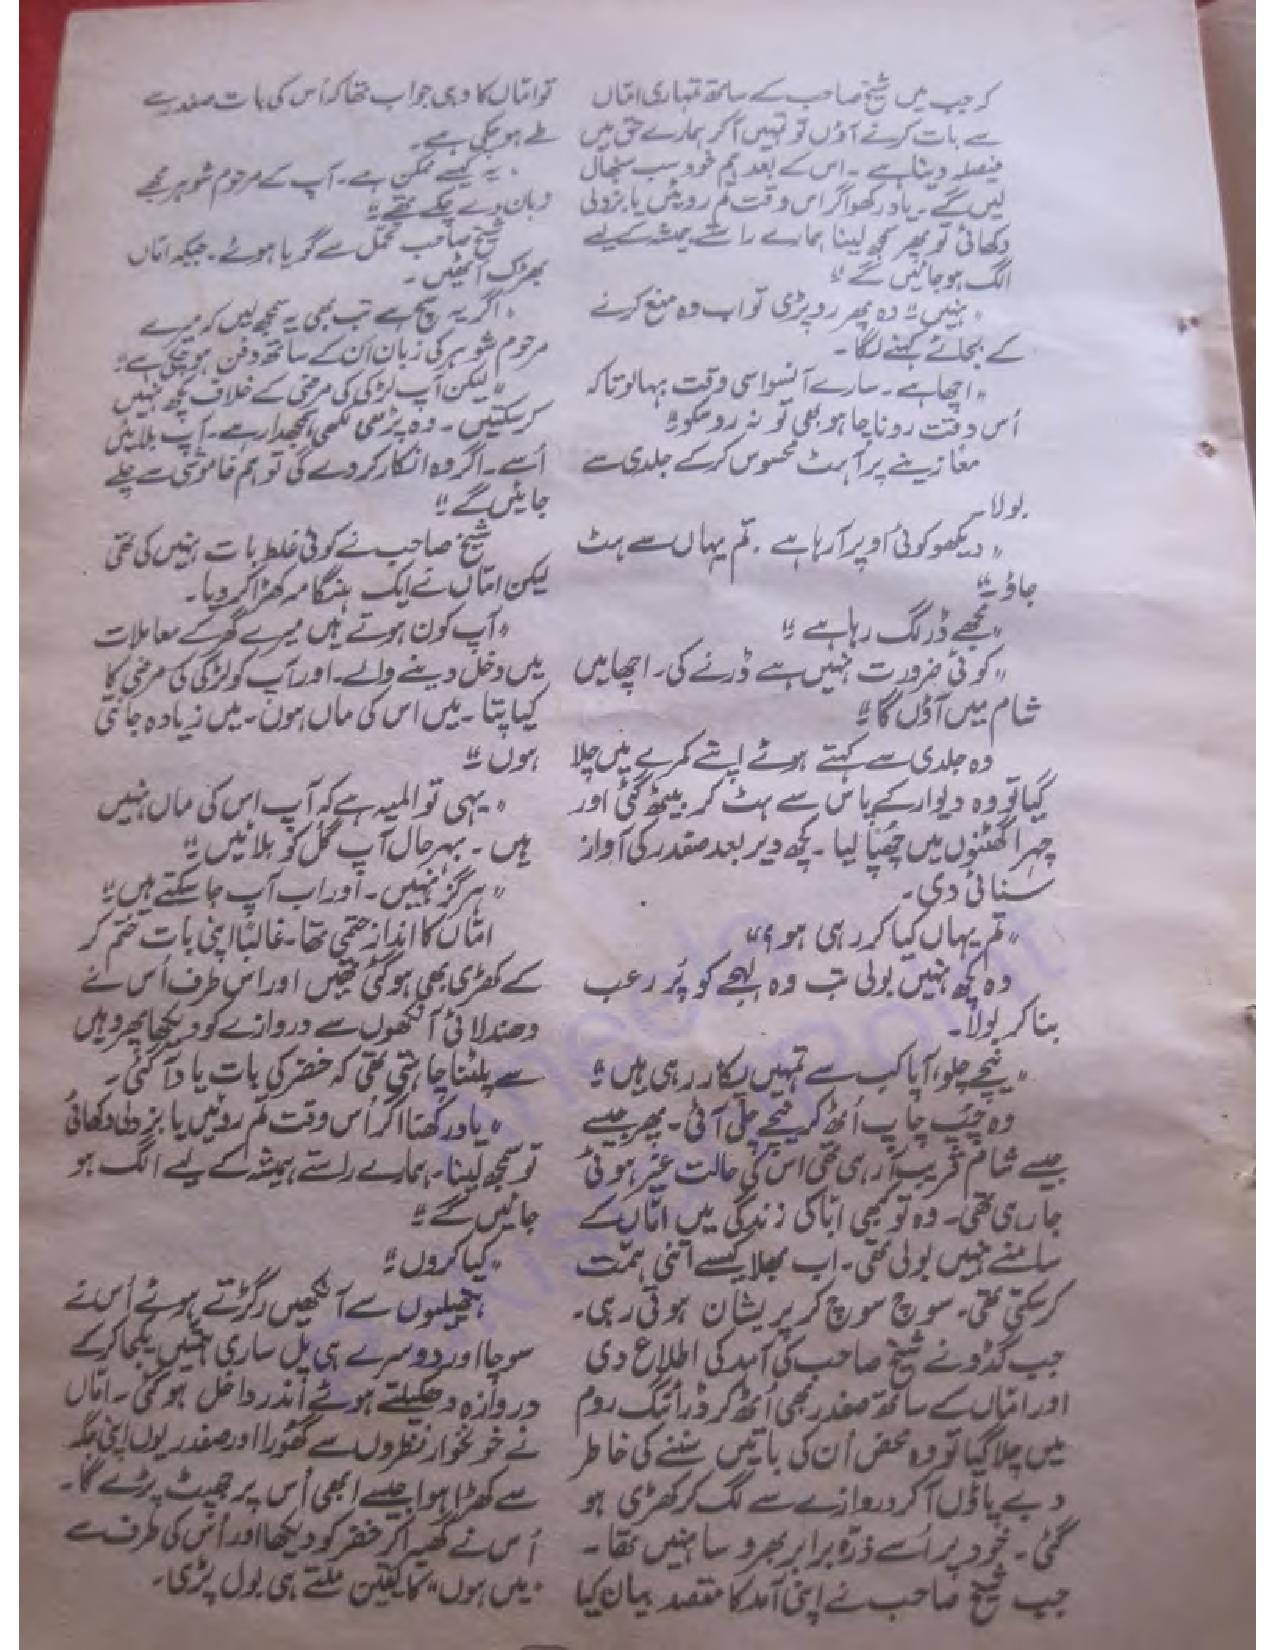 کر جب میں شیخ صاحب کے ساتھ تمہاری امّاں
سے بات کرنے آؤں تو تمہیں آ کر ہمارے حق میں
فیصلہ دینا ہے۔ اس کے بعد ہم خود سب سنبھال
لیں گے۔ یاد رکھو اگر اس وقت تم روئیں یا بزدلی
دکھائی تو پھر سمجھ لینا ہمارے راستے ہمیشہ کے لیے
الگ ہو جائیں گے۔"
"نہیں" وہ پھر رو پڑی تو اب وہ منع کرنے
کے بجائے کہنے لگا۔
"اچھا ہے۔ سارے آنسو اسی وقت بہا لو تاکہ
اُس وقت رونا چاہو بھی تو نہ رو سکو۔"
معاً زینے پر آہٹ محسوس کرکے جلدی سے
بولا۔
"دیکھو کوئی اُوپر آ رہا ہے۔ تم یہاں سے ہٹ
جاؤ۔"
"مجھے ڈر لگ رہا ہے۔"
"کوئی ضرورت نہیں ہے ڈرنے کی۔ اچھا میں
شام میں آؤں گا۔"
وہ جلدی سے کہتے ہوئے اپنے کمرے میں چلا
گیا تو وہ دیوار کے پاس سے ہٹ کر بیٹھ گئی اور
چہرا گھٹنوں میں چھپا لیا۔ کچھ دیر بعد صفدر کی آواز
سنائی دی۔
"تم یہاں کیا کر رہی ہو؟"
وہ کچھ نہیں بولی تب وہ لہجے کو پُر رعب
بنا کر بولا۔
"نیچے چلو، آپا کب سے تمہیں پکار رہی ہیں۔"
وہ چپ چاپ اُٹھ کر نیچے چلی آئی۔ پھر جیسے
جیسے شام قریب آ رہی تھی اس کی حالت غیر ہوئی
جا رہی تھی۔ وہ تو کبھی ابّا کی زندگی میں امّاں کے
سامنے نہیں بولی تھی۔ اب بھلا کیسے اتنی ہمّت
کرسکتی تھی۔ سوچ سوچ کر پریشان ہوتی رہی۔
جب گڈو نے شیخ صاحب کی آمد کی اطلاع دی
اور امّاں کے ساتھ صفدر بھی اُٹھ کر ڈرائنگ روم
میں چلا گیا تو وہ محض اُن کی باتیں سننے کی خاطر
دبے پاؤں آ کر دروازے سے لگ کر کھڑی ہو
گئی۔ خود پر اُسے ذرّہ برابر بھروسا نہیں تھا۔
جب شیخ صاحب نے اپنی آمد کا مقصد بیان کیا
تو امّاں کا وہی جواب تھا کہ اُس کی بات صفدر سے
طے ہو چکی ہے۔
"یہ کیسے ممکن ہے۔ آپ کے مرحوم شوہر مجھے
زبان دے چکے تھے۔"
شیخ صاحب تحمّل سے گویا ہوئے۔ جبکہ امّاں
بھڑک اُٹھیں۔
"اگر یہ سچ ہے تب بھی یہ سمجھ لیں کہ میرے
مرحوم شوہر کی زبان اُن کے ساتھ دفن ہو چکی ہے۔"
"لیکن آپ لڑکی کی مرضی کے خلاف کچھ نہیں
کرسکتیں۔ وہ پڑھی لکھی سمجھدار ہے۔ آپ بلائیں
اُسے۔ اگر وہ انکار کر دے گی تو ہم خاموشی سے چلے
جائیں گے۔"
شیخ صاحب نے کوئی غلط بات نہیں کی تھی
لیکن امّاں نے ایک ہنگامہ کھڑا کر دیا۔
"آپ کون ہوتے ہیں میرے گھر کے معاملات
میں دخل دینے والے۔ اور آپ کو لڑکی کی مرضی کا
کیا پتا۔ میں اس کی ماں ہوں۔ میں زیادہ جانتی
ہوں۔"
"یہی تو المیہ ہے کہ آپ اس کی ماں نہیں
ہیں۔ بہرحال آپ گل کو بلائیں۔"
"ہرگز نہیں۔ اور اب آپ جا سکتے ہیں۔"
امّاں کا انداز حتمی تھا۔ غالباً اپنی بات ختم کر
کے کھڑی بھی ہو گئی تھیں اور اس طرف اُس نے
دھندلائی آنکھوں سے دروازے کو دیکھا پھر وہیں
سے پلٹنا چاہتی تھی کہ خضر کی بات یاد آ گئی۔
"یاد رکھنا اگر اُس وقت تم روئیں یا بزدلی دکھائی
تو سمجھ لینا۔ ہمارے راستے ہمیشہ کے لیے الگ ہو
جائیں گے۔"
"کیا کروں۔"
ہتھیلیوں سے آنکھیں رگڑتے ہوئے اُس نے
سوچا اور دوسرے ہی پل ساری ہمتیں یکجا کرکے
دروازہ دھکیلتے ہوئے اندر داخل ہو گئی۔ امّاں
نے خونخوار نظروں سے گھورا اور صفدر یوں اپنی جگہ
سے کھڑا ہوا جیسے ابھی اُس پر جھپٹ پڑے گا۔
اُس نے گھبرا کر خضر کو دیکھا اور اُس کی طرف سے
"میں ہوں" کا یقین ملتے ہی بول پڑی۔